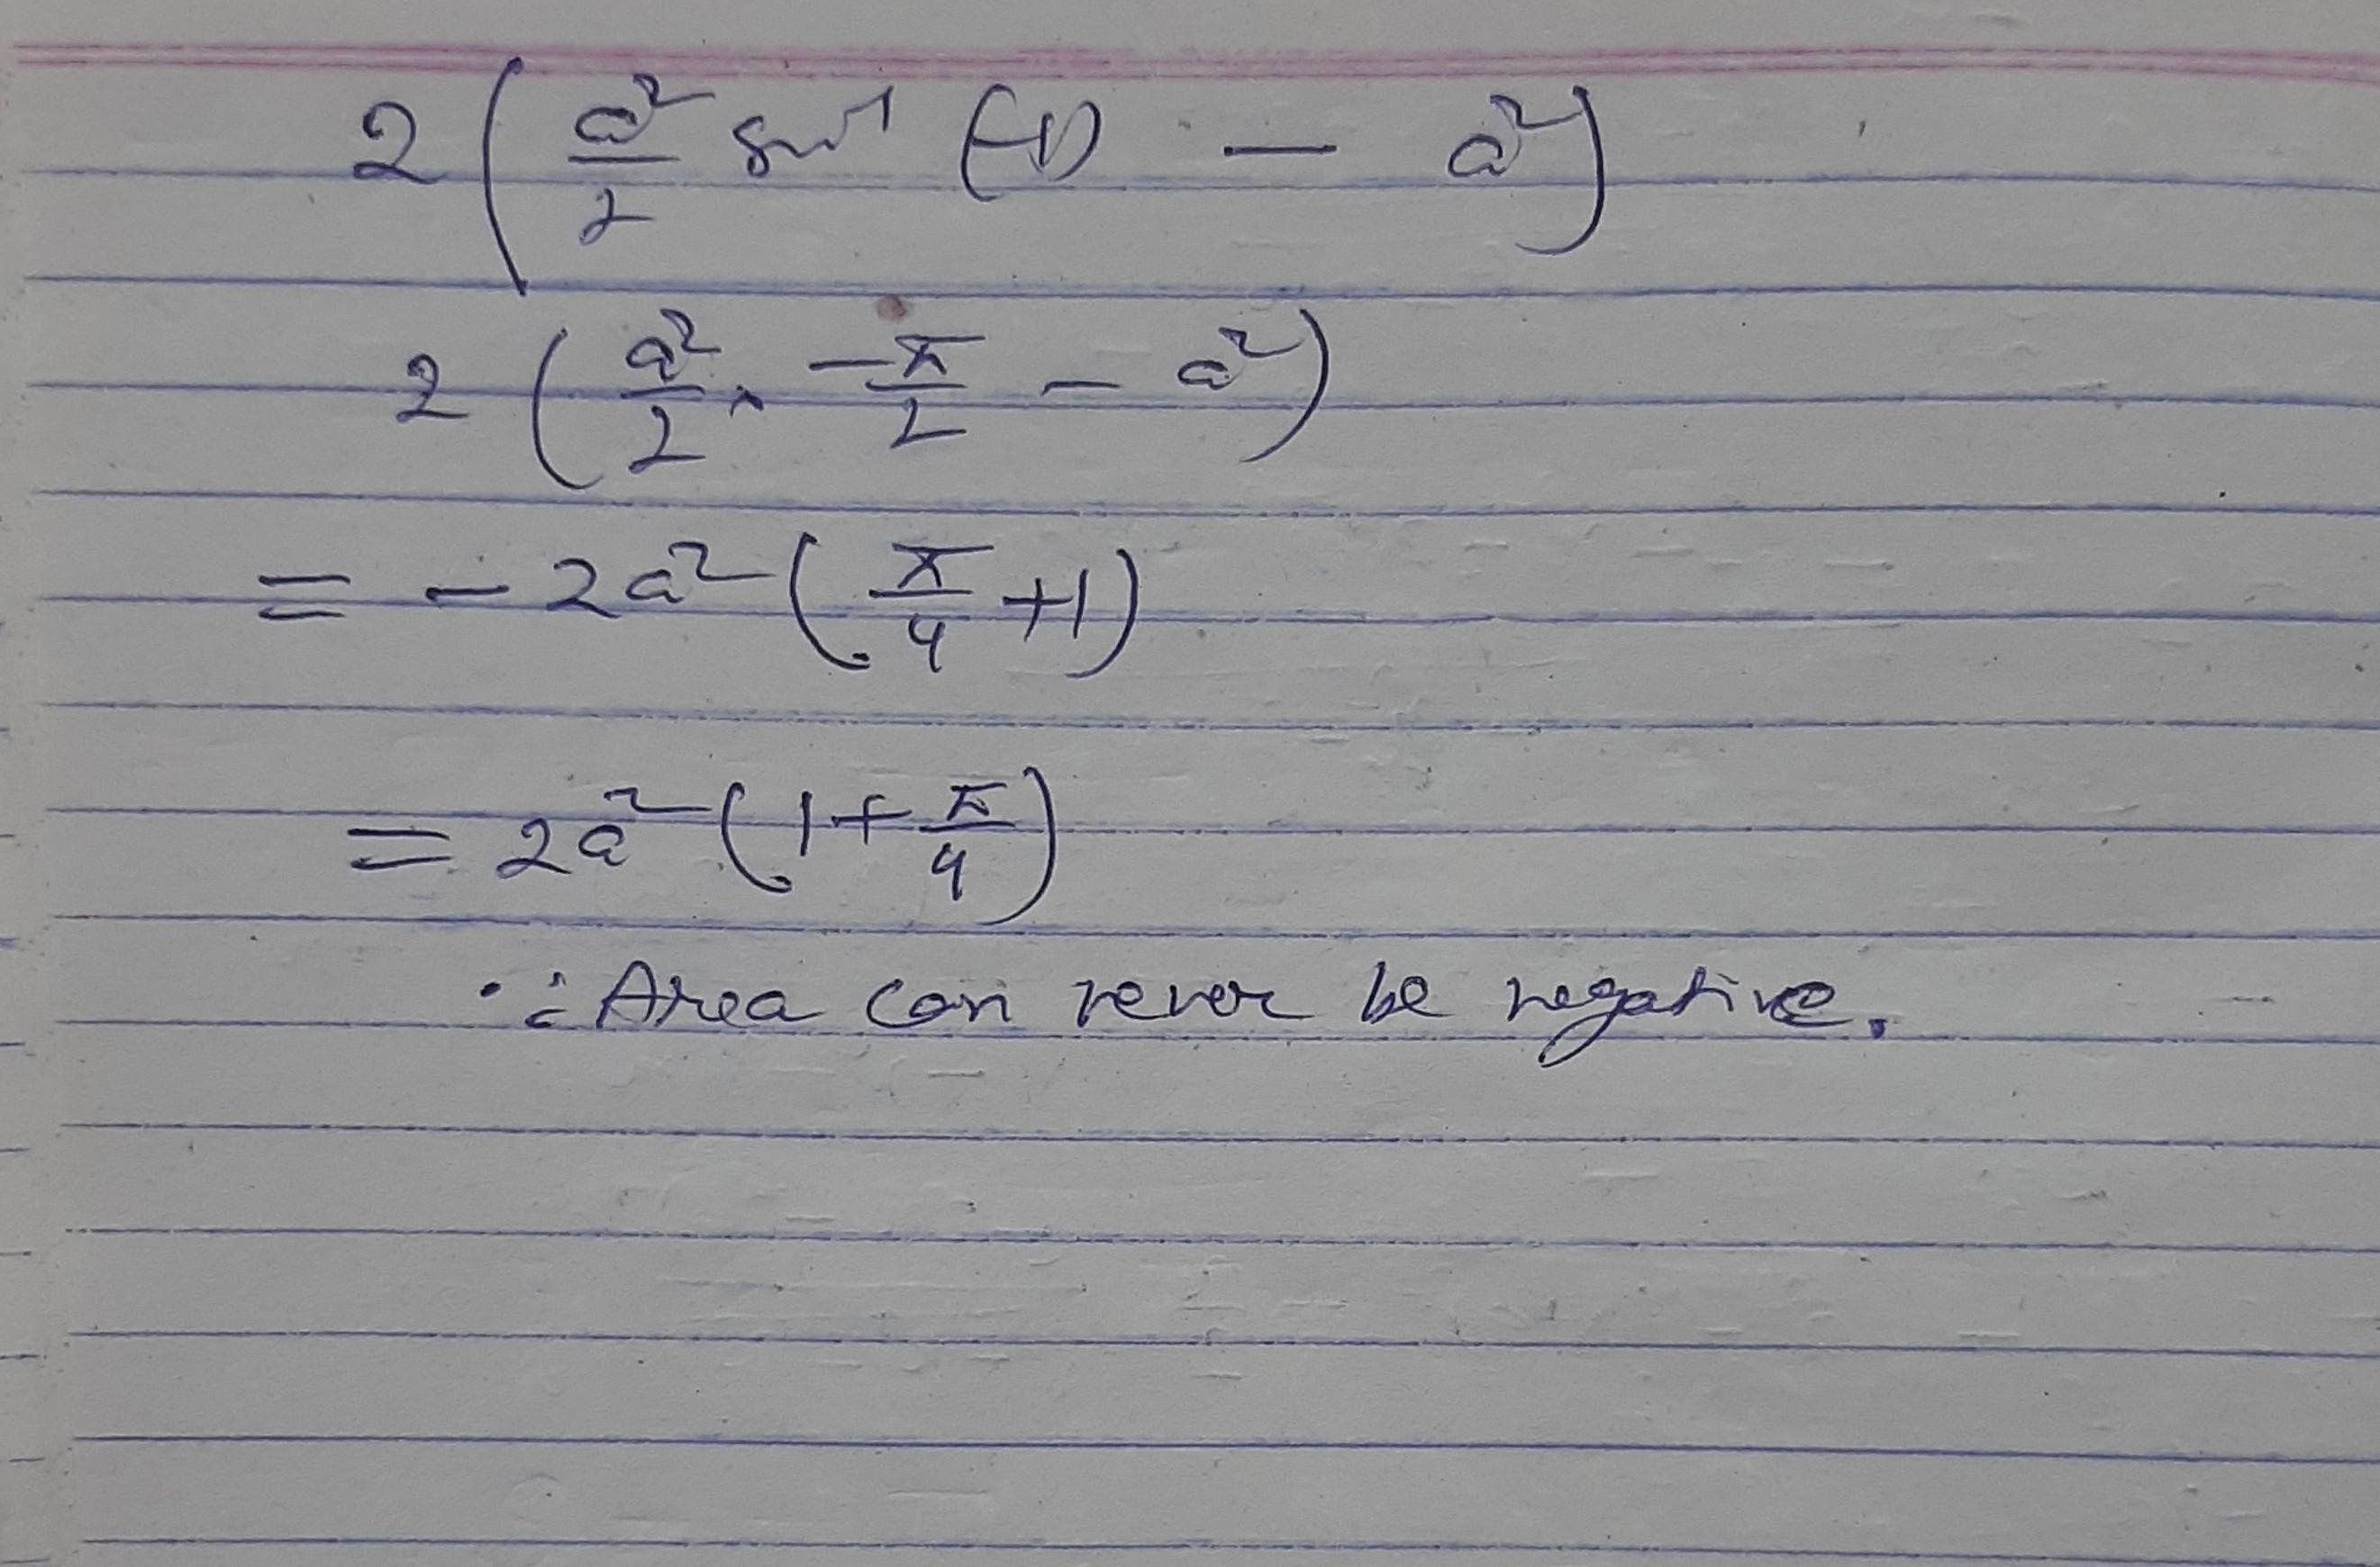 2 ( a²/2 sin⁻¹ (-1) - a² )
2 ( a²/2 × -π/2 - a² )
= - 2a² ( π/4 + 1 )
= 2a² ( 1 + π/4 )
∵ Area can never be negative.